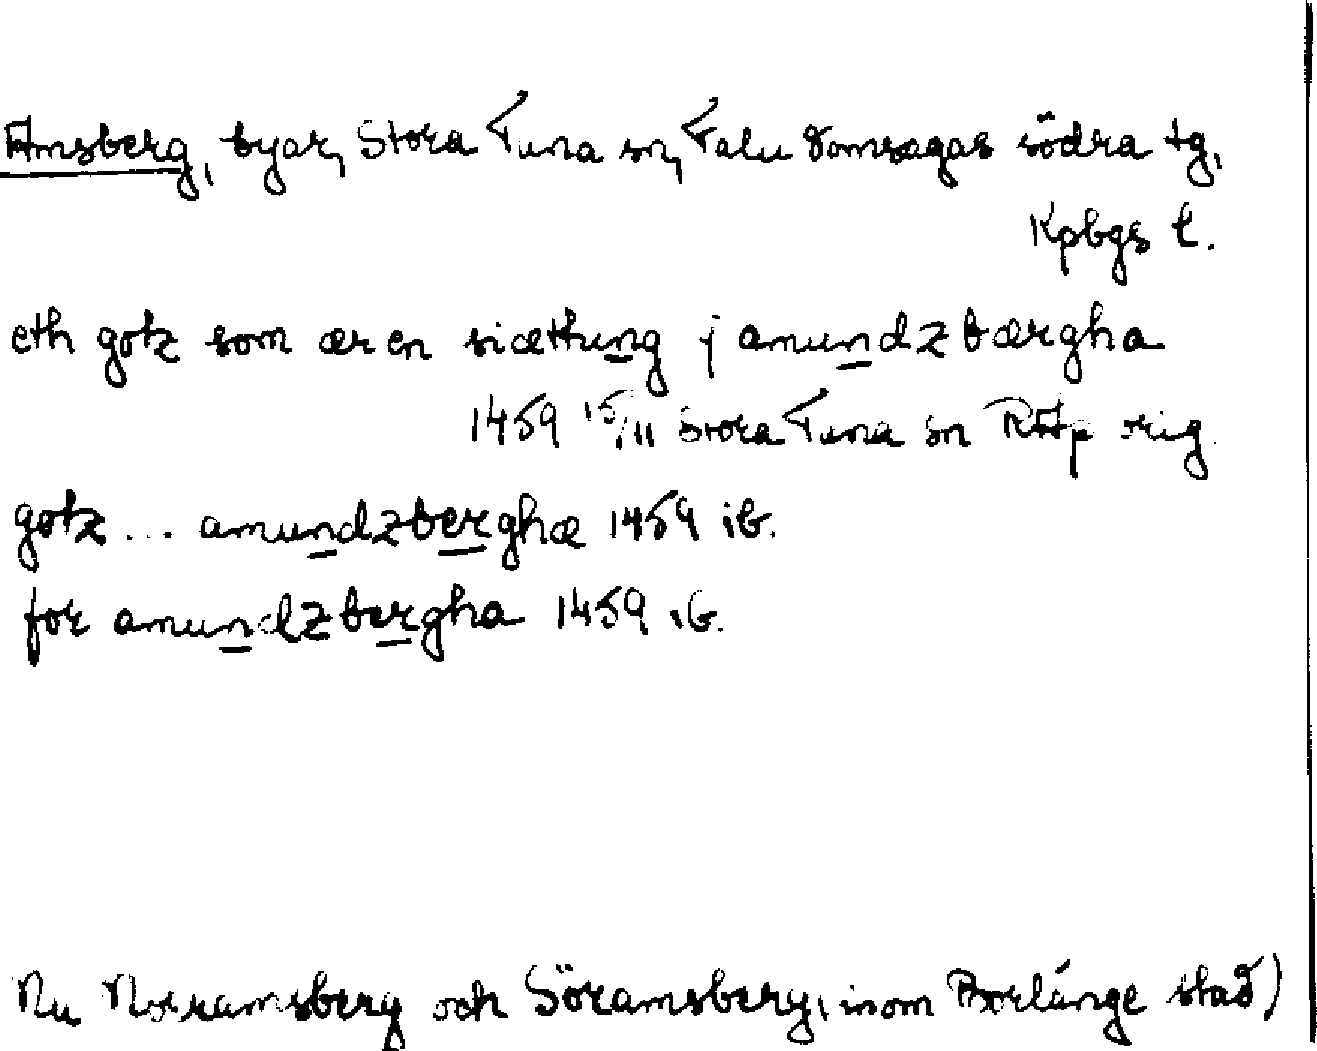 Amsberg, byar, Stora Tuna sn, Falu Domsagas södra tg,
Kpbgs l.
eth gotz som ær en siætthung j amundzbærgha
1459 15/11 Stora Tuna sn RAp orig
gotz... amundzberghæ 1459 ib.
for amundzbergha 1459 ib.
Nu Norramsberg och Söramsberg, inom Borlänge stad)